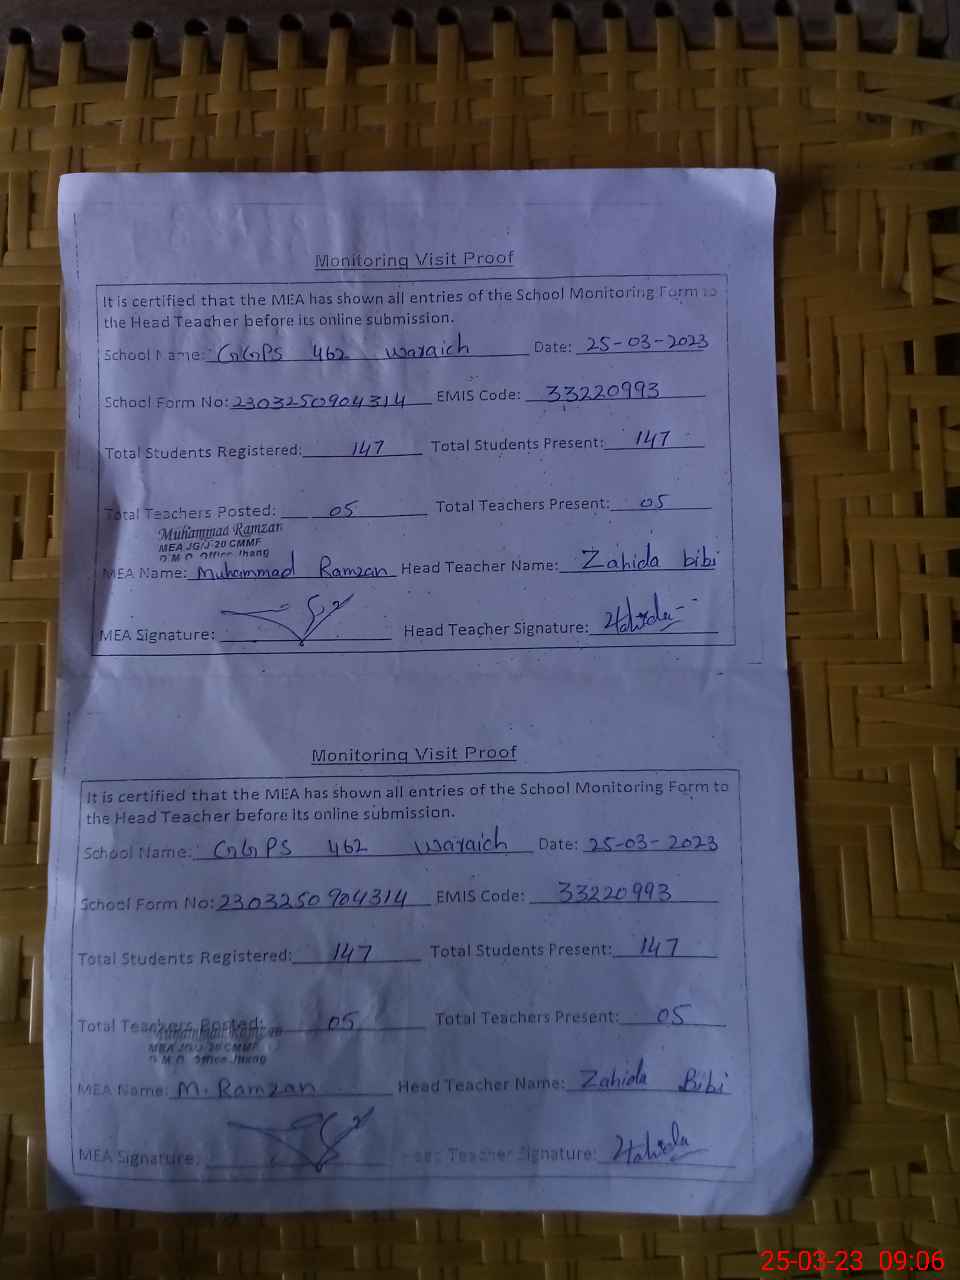 Monitoring Visit Proof
It is certified that the MEA has shown all entries of the School Monitoring Form to
the Head Teacher before its online submission.
School Name: GGPS 462 Waraich Date: 25-03-2023
School Form No: 2303250904314 EMIS Code: 33220993
Total Students Registered: 147 Total Students Present: 147
Total Teachers Posted: 05 Total Teachers Present: 05
Muhammad Ramzan
MEA JG/J-20 CMMF
D.M.O. Office Jhang
MEA Name: Muhammad Ramzan Head Teacher Name: Zahida bibi
MEA Signature: Head Teacher Signature: Zahida
Monitoring Visit Proof
It is certified that the MEA has shown all entries of the School Monitoring Form to
the Head Teacher before its online submission.
School Name: GGPS 462 Waraich Date: 25-03-2023
School Form No: 2303250904314 EMIS Code: 33220993
Total Students Registered: 147 Total Students Present: 147
Total Teachers Posted: 05 Total Teachers Present: 05
Muhammad Ramzan
MEA JG/J-20 CMMF
D.M.O. Office Jhang
MEA Name: M. Ramzan Head Teacher Name: Zahida Bibi
MEA Signature: Head Teacher Signature: Zahida
25-03-23 09:06